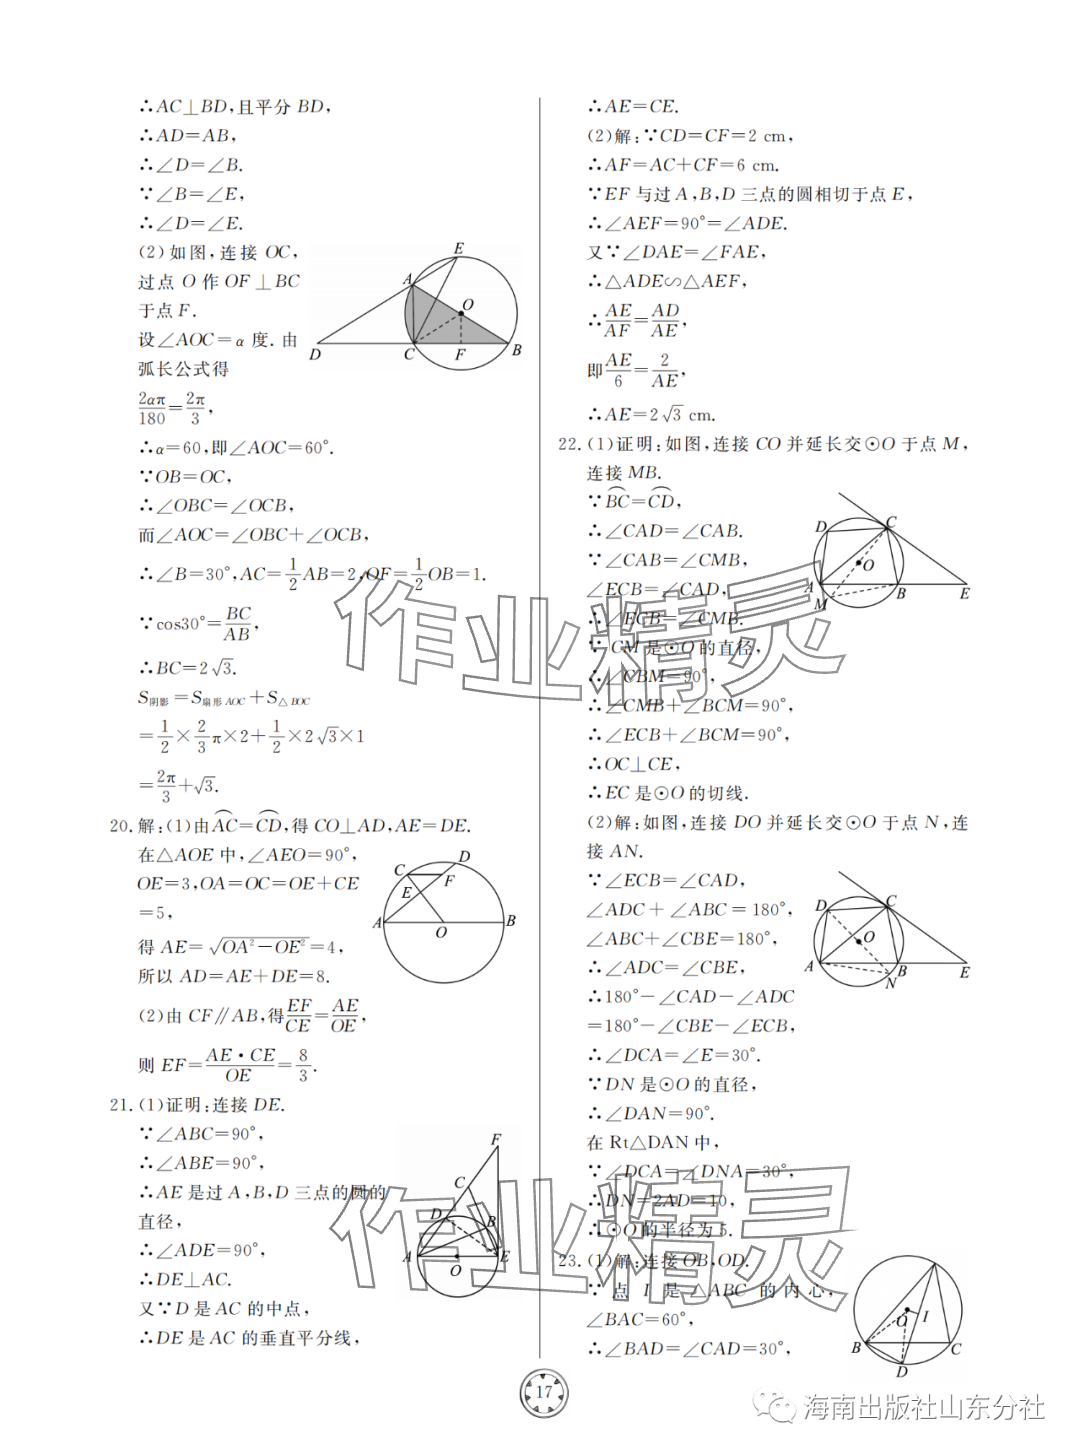 ∴AC⊥BD,且平分 BD,
∴AD=AB,
∴∠D=∠B.
∵∠B=∠E,
∴∠D=∠E.
(2)如图,连接 OC,
过点 O 作 OF⊥BC
于点 F.
设∠AOC=α 度.由
弧长公式得
2απ/180=2π/3,
∴α=60,即∠AOC=60°.
∵OB=OC,
∴∠OBC=∠OCB,
而∠AOC=∠OBC+∠OCB,
∴∠B=30°,AC=1/2AB=2,OF=1/2OB=1.
∵cos30°=BC/AB,
∴BC=2√3.
S阴影=S扇形AOC+S△BOC
=1/2×2/3π×2+1/2×2√3×1
=2π/3+√3.
E
A
O
D
C
F
B
20.解:(1)由AC⌒=CD⌒,得 CO⊥AD,AE=DE.
在△AOE 中,∠AEO=90°,
OE=3,OA=OC=OE+CE
=5,
得 AE=√(OA²-OE²)=4,
所以 AD=AE+DE=8.
(2)由 CF∥AB,得EF/CE=AE/OE,
则 EF=AE·CE/OE=8/3.
D
C
F
E
A
O
B
21.(1)证明:连接 DE.
∵∠ABC=90°,
∴∠ABE=90°,
∴AE 是过 A,B,D 三点的圆的
直径,
∴∠ADE=90°,
∴DE⊥AC.
又∵D 是 AC 的中点,
∴DE 是 AC 的垂直平分线,
F
C
D
B
A
O
E
∴AE=CE.
(2)解:∵CD=CF=2 cm,
∴AF=AC+CF=6 cm.
∵EF 与过 A,B,D 三点的圆相切于点 E,
∴∠AEF=90°=∠ADE.
又∵∠DAE=∠FAE,
∴△ADE∽△AEF,
∴AE/AF=AD/AE,
即AE/6=2/AE,
∴AE=2√3 cm.
22.(1)证明:如图,连接 CO 并延长交⊙O 于点 M,
连接 MB.
∵BC⌒=CD⌒,
∴∠CAD=∠CAB.
∵∠CAB=∠CMB,
∠ECB=∠CAD,
∴∠ECB=∠CMB.
∵ CM 是⊙O 的直径,
∴∠CBM=90°,
∴∠CMB+∠BCM=90°,
∴∠ECB+∠BCM=90°,
∴OC⊥CE,
∴EC 是⊙O 的切线.
D
C
O
A
M
B
E
(2)解:如图,连接 DO 并延长交⊙O 于点 N,连
接 AN.
∵∠ECB=∠CAD,
∠ADC+∠ABC=180°,
∠ABC+∠CBE=180°,
∴∠ADC=∠CBE,
∴180°-∠CAD-∠ADC
=180°-∠CBE-∠ECB,
∴∠DCA=∠E=30°.
∵DN 是⊙O 的直径,
∴∠DAN=90°.
在 Rt△DAN 中,
∵∠DCA=∠DNA=30°,
∴DN=2AD=10,
∴⊙O 的半径为 5.
D
C
O
A
B
E
N
23.(1)解:连接 OB,OD.
∵点 I 是△ABC 的内心,
∠BAC=60°,
∴∠BAD=∠CAD=30°,
O
I
B
C
D
作业精灵
作业精灵
17
海南出版社山东分社